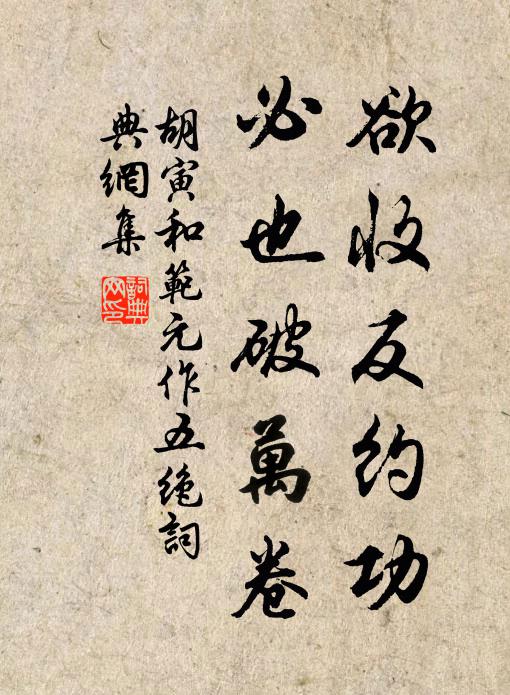 欲收反約功
必也破萬卷
胡寅和範元作五絶詞
典網集
詞典
网印